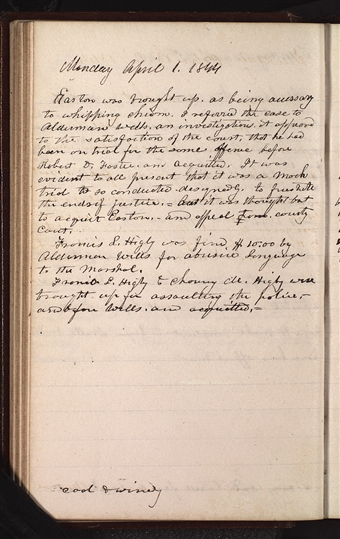 Monday April 1. 1844
Easton was brought up. as being accessary
to whipping Chism. I referred the case to
Alderman Wells, on investigation. it appeard
to the satisfaction of the court, that he had
been on trial for the same offience before
Robert D. Foster. and acquitted. It was
evident to all present that it was a mock
trial & so conducted designedly, to frustrate
the ends of justice. - but it was thought best
to acquit Easton, - and appeal from. county
Court. -
Francis L. Higby was fined $10.00 by
Alderman Wells for abusive language
to the Marshal.
Francis L. Higby & Chauncy Higby were
brought up for assaulting the police, -
and before Wells. and acquitted, -
cool & windy